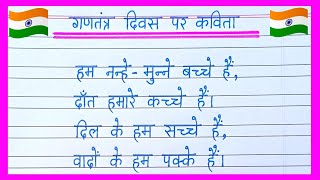 गणतंत्र दिवस पर कविता
हम नन्हे-मुन्ने बच्चे हैं,
दाँत हमारे कच्चे हैं।
दिल के हम सच्चे हैं,
वादों के हम पक्के हैं।